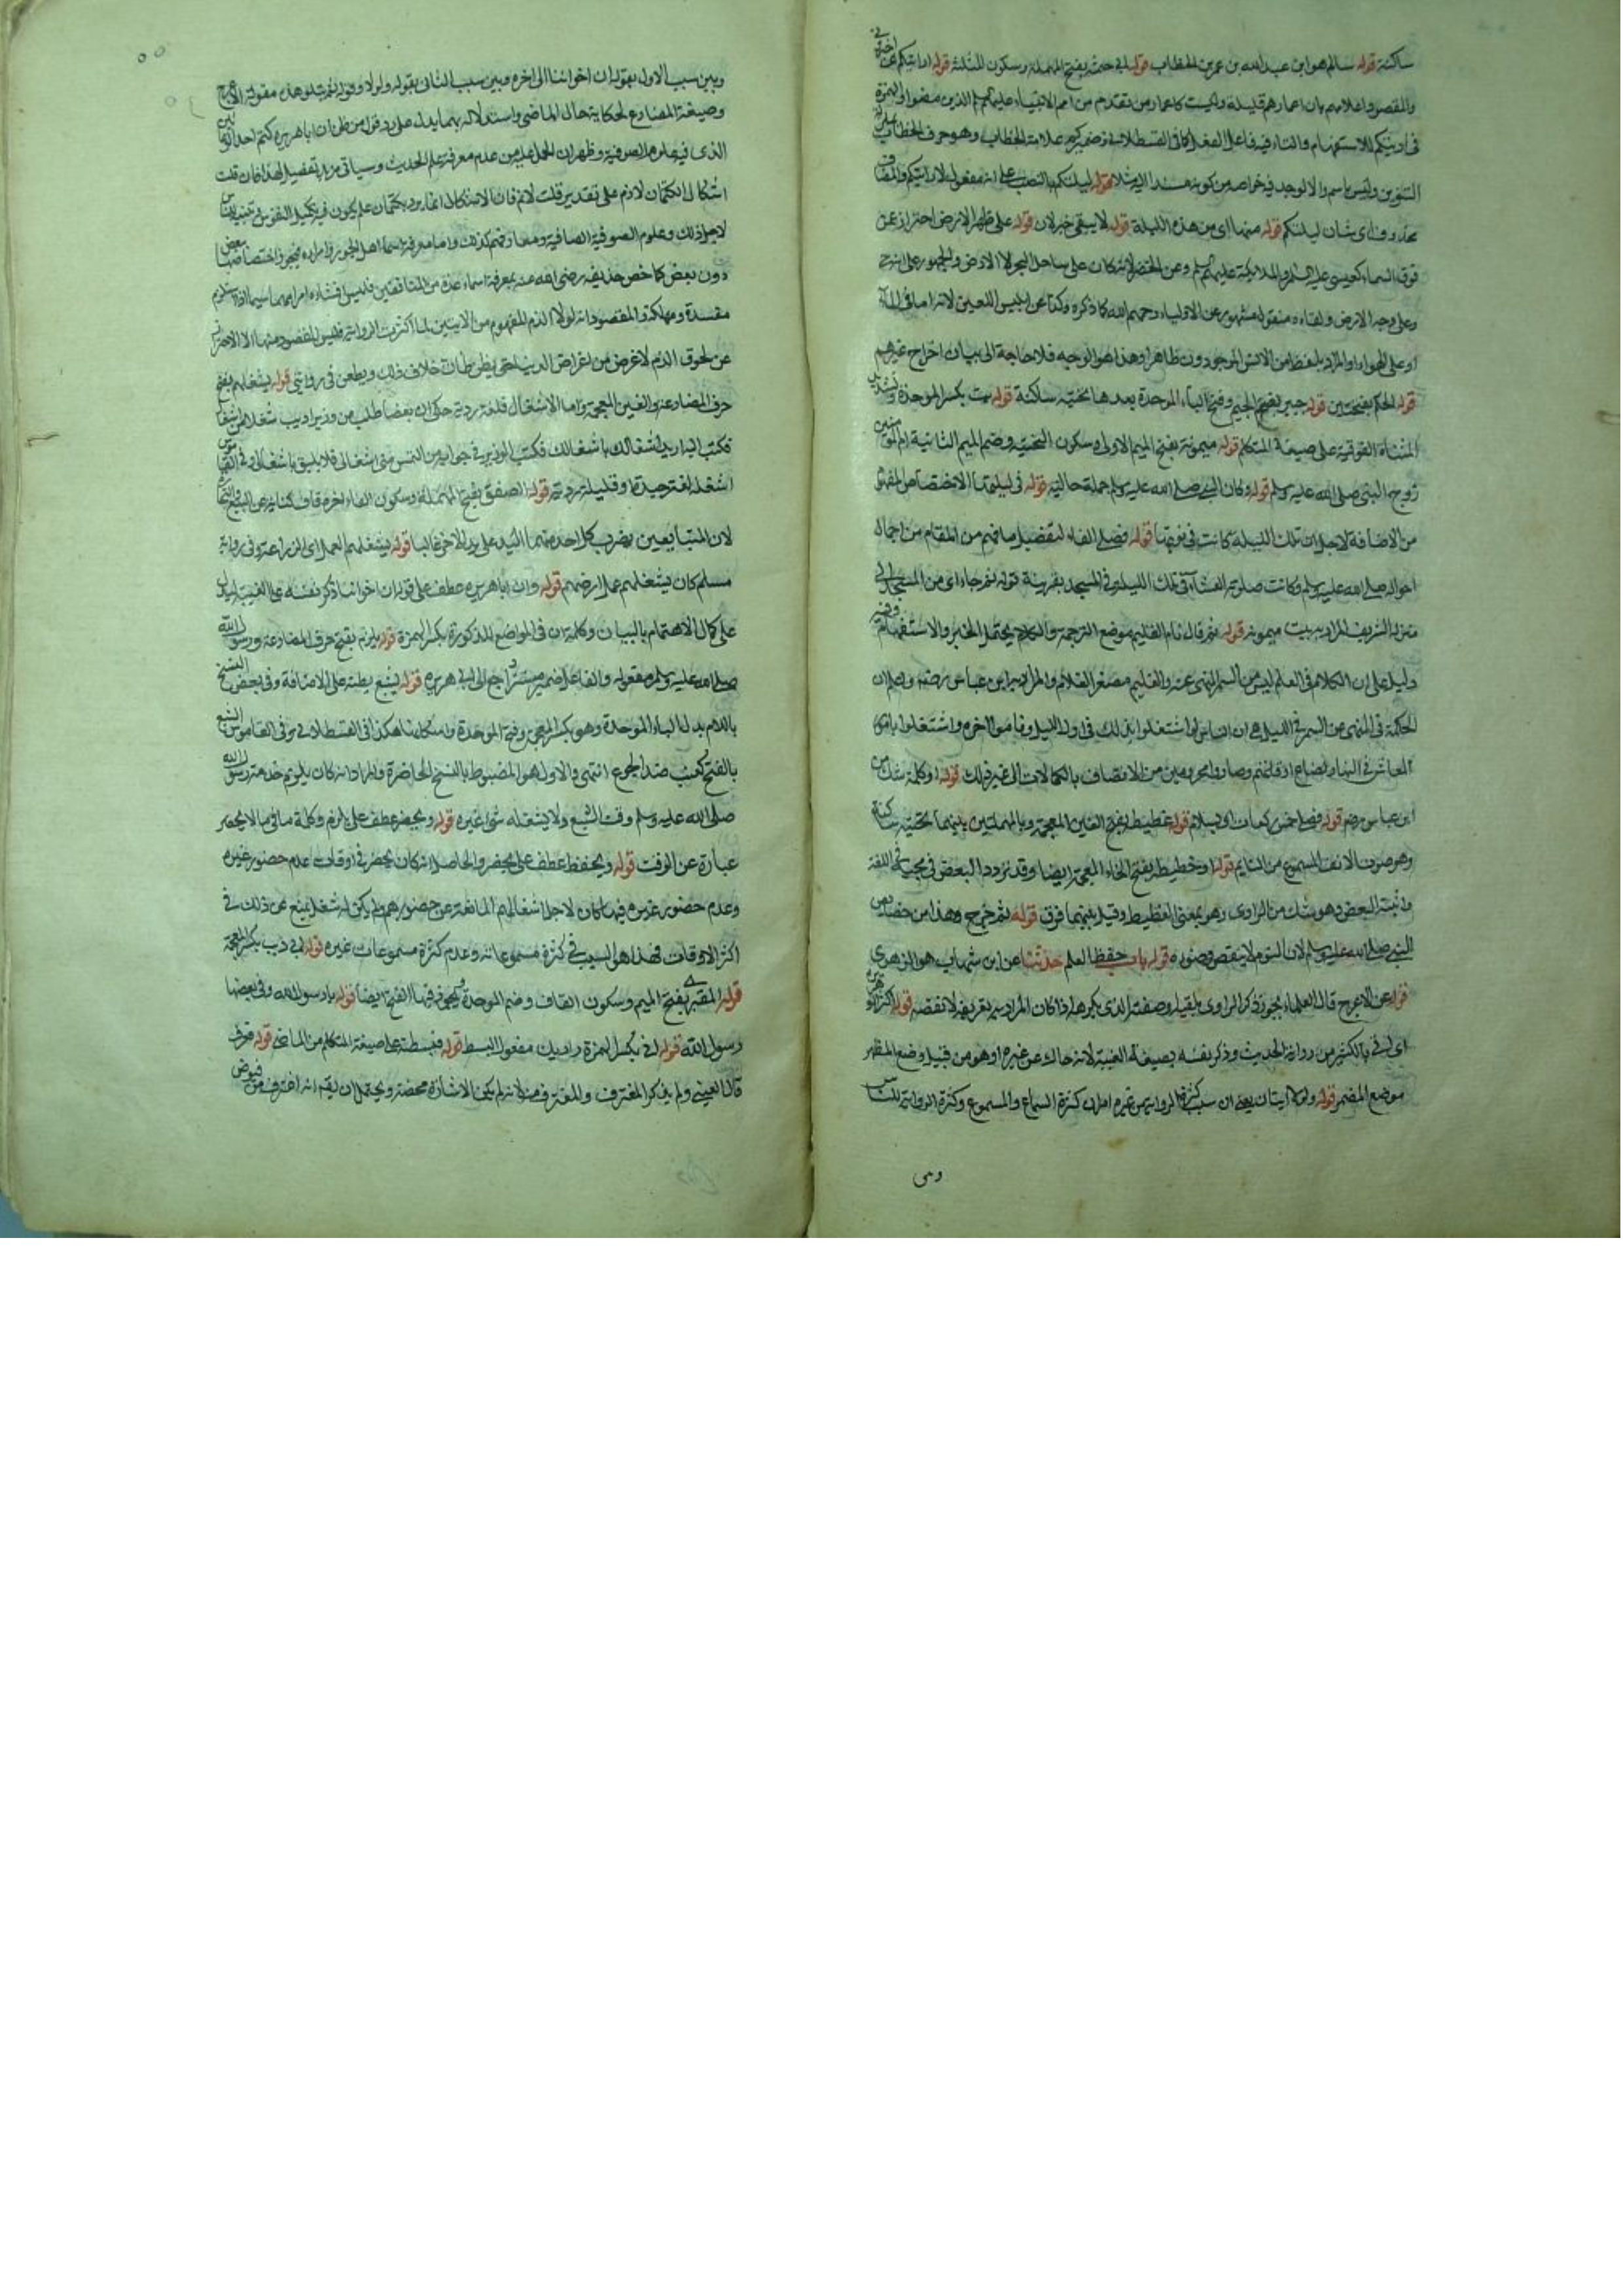 ساكنة قوله سالم هو ابن عبدالله بن عمر بن الخطاب قوله ابي حثمة بفتح المهملة وسكون المثلثة قوله ارايتكم
والمقصود اعلامهم بان اعمارهم قليلة وليست كاعمار من تقدم من امم الانبياء عليهم السلام الذين مضوا والهمزة
في ارأيتكم للاستفهام والتاء فيه فاعل الفعل كما في القسطلاني وضمير كم علامة الخطاب وهو حرف الخطاب
التنوين وليس باسم والا لوجد فيه خواصه من كونه مسندا اليه مثلا قوله ليلتكم بالنصب على انه مفعول لارايتكم والمضاف
محذوف اي شان ليلتكم قوله منها اي من هذه الليلة قوله لا يبقى خبر لان قوله على ظهر الارض احتراز عمن
فوق السماء كعيسى عليه السلام والملائكة عليهم السلم وعن الخضر لانه كان على ساحل البحر لا الارض والجمهور على انه حي
وعلى وجه الارض ولقاءه منقولة مشهور عن الاولياء رحمهم الله كما ذكره وكذا عن ابليس اللعين لانه اما في الماء
او على الهواء او المراد بلفظ من الانس الموجودون ظاهرا وهذا هو الوجيه فلا حاجة الى بيان اخراج غيرهم
قوله الحكم بفتحتين قوله جبير بضم الجيم وفتح الباء الموحدة بعدها تحتية ساكنة قوله بت بكسر الموحدة وتشديد
المثناة الفوقية على صيغة المتكلم قوله ميمونة بفتح الميم الاولى وسكون التحتية وضم الميم الثانية ام المؤمنين
زوج النبي صلى الله عليه وسلم قوله وكان النبي صلى الله عليه وسلم جملة حالية قوله في ليلتها الاختصاص المفهوم
من الاضافة لاجل ان تلك الليلة كانت في نوبتها قوله فصلى الفاء لتفصيل ما فهم من المقام من اجمال
احواله صلى الله عليه وسلم وكانت صلوته العشاء في تلك الليلة في المسجد بقرينة قوله ثم جاء اي من المسجد الى
منزله الشريف المراد به بيت ميمونة قوله ثم قال نام الغليم موضع الترجمة والكلام يحتمل الخبر والاستفهام وفيه
دليل على ان الكلام في العلم ليس من السمر المنهي عنه والغليم مصغر الغلام والمراد به ابن عباس رضهم واعلم ان
الحكمة في المنهى عن السمر في الليل هي ان الناس لو اشتغلوا بذلك في اول الليل وناموا اخره واشتغلوا بامور
المعاش في النهار لضاع اوقاتهم وصاروا محرومين من الاتصاف بالكمالات الى غير ذلك قوله او كلمة شك من
ابن عباس رضهم قوله فصلى خمس ركعات اي بسلام قوله غطيطه بفتح الغين المعجمة وبالمهملتين بينهما تحتية ساكنة
وهو صوت الانف المسموع من النايم قوله او خطيطه بفتح الخاء المعجمة ايضا وقد تردد البعض في مجيئه في اللغة
واثبته البعض وهو شك من الراوي وهو بمعنى الغطيط وقيل بينهما فرق قوله ثم خرج وهذا من خصايص
النبي صلى الله عليه وسلم لان النوم لا ينقض وضوءه قوله باب حفظ العلم حدثنا عن ابن شهاب هو الزهري
قوله عن الاعرج قال العلماء يجوز ذكر الراوي بلقبه او صفته الذي يكرهه اذا كان المراد به تعريفه لا نقصه قوله اكثر ابو هريرة
اي اتى بالكثير من رواية الحديث وذكر نفسه بصيغة الغيبة لانه حاك عن غيره او هو من قبيل وضع المظهر
موضع المضمر قوله ولولا ايتان يعني ان سبب كثرة الرواية من غيره امران كثرة السماع والمسموع وكثرة الرواية للناس
وبين
وبين سبب الاول بقوله ان اخواننا الى اخره وبين سبب الثاني بقوله ولولا وقوله ثم يتلو هذه مقولة الاعرج
وصيغة المضارع لحكاية حال الماضي واستدلاله بهما يدل على رد قول من ظن ان ابا هريرة كتم احد الوعائين
الذي فيه علوم الصوفية وظهر ان الحمل عليه من عدم معرفة علم الحديث وسياتي مزيد تفصيل لهذا فان قلت
اشكال الكتمان لازم على تقدير قلت لا نم فان الاشكال انما يرد بكتمان علم يكون فيه تكميل النفوس
لاجل ذلك وعلوم الصوفية الصافية ومعارفهم كذلك واما معرفة اسماء اهل الجور وامراءه فيجوز اختصاصها بعض
دون بعض كما خص حذيفة رضي الله عنه بمعرفة اسماء عدة من المنافقين فليس افشاءه امرا مهما سيما اذا استلزم
مفسدة ومهلكة والمقصود انه لولا الذم المفهوم من الايتين لما اكثرت الرواية فليس المقصود منها الا الاحتراز
عن لحوق الذم لا غرض من اغراض الدنيا حتى يظن ظان خلاف ذلك ويطعن في روايتي قوله يشغلهم بفتح
حرف المضارعة والغين المعجمة واما الاشغال فلغة ردية حكي ان بعضا طلب من وزير اديب شغلا
فكتب اليه اريد اشغالك باشغالك فكتب الوزير في جوابه من التمس مني اشغالي فلا يليق باشغالي وفي القاموس
اشغله لغة جيدة او قليلة ردية قوله الصفق بفتح المهملة وسكون الفاء اخره قاف كناية عن البيع والتجارة
لان المتبايعين يضرب كل احد منهما اليد على يد الاخر غالبا قوله يشغلهم العمل اي الزراعة وفي رواية
مسلم كان يشغلهم عمل ارضهم قوله وان ابا هريرة عطف على قوله ان اخواننا ذكر نفسه على الغيبة
على كمال الاهتمام بالبيان وكلمة ان في المواضع المذكورة بكسر الهمزة قوله يلزم بفتح حرف المضارعة ورسول الله
صلى الله عليه وسلم مفعوله والفاعل ضمير مستتر راجع الى ابي هريرة قوله لشبع بطنه على الاضافة وفي بعض النسخ
باللام بدل الباء الموحدة وهو بكسر المعجمة وفتح الموحدة واسكانها هكذا في القسطلاني وفي القاموس الشبع
بالفتح كعنب ضد الجوع انتهى والاول هو المضبوط بالنسخ الحاضرة والمراد انه كان يلزم خدمة رسول الله
صلى الله عليه وسلم وقت الشبع ولا يشغله شئ غيره قوله ويحضر عطف على يلزم وكلمة ما في ما لا يحضر
عبارة عن الوقت قوله ويحفظ عطف على يحضر والحاصل انه كان يحضر في اوقات عدم حضور غيره
وعدم حضور غيره فيها كان لاجل اشغالهم المانعة عن حضورهم ولم يكن له شغل يمنع عن ذلك في
اكثر الاوقات فهذا هو السبب في كثرة مسموعاته وعدم كثرة مسموعات غيره قوله ابي ذئب بكسر المعجمة
قوله المقبري بفتح الميم وسكون القاف وضم الموحدة ويجوز فيها الفتح ايضا قوله يا رسول الله وفي بعضها
رسول الله قوله اني بكسر الهمزة رداءك مفعول ابسط قوله فبسطته على صيغة المتكلم من الماضي قوله فغرف
قال العيني ولم يذكر المغترف والمغترف منه لانه لم يكن الا اشارة محضة ويحتمل ان يقم انه اغترف من فيوض